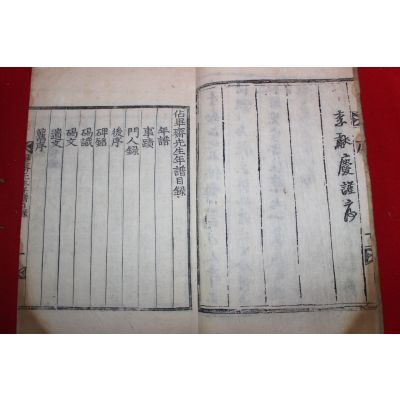 李獻慶謹序
佔畢齋先生年譜目錄
年譜
事蹟
門人錄
後序
碑銘
碣識
碣文
遺文
舊序